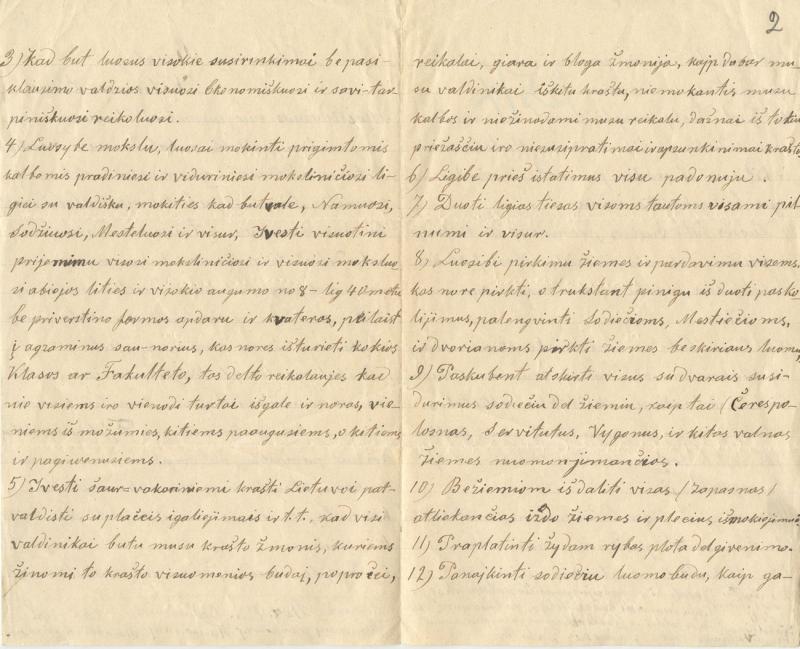 2
3) Kad but luosus visokie susirinkimai be pasi-
klausimo valdzios visuosi Ekonomiškuosi ir savi-tar
piniškuosi reikoluosi.
4) Luosybe mokslu, luosai mokinti prigimtomis
kalbomis pradiniesi ir viduriniesi moksliničiosi li-
giei su valdišku, mokities kad but vale, Namuosi,
Sodžiuosi, Mesteluosi ir visur, Įvesti visuotini
prijemimu visosi moksliničiosi ir visuosi moksluo
si abiejos lities ir visokio augumo no 8- lig 40 metu
be priverstino formos apdaru ir kvateros, prilaist
į agzaminus sau-norius, kas nores išturieti kokios
Klasos ar Fakulteto, tas delto reikalaujes kad
nie visiems iro vienodi turtai išgale ir noras, vie-
niems iš mažumies, kitiems paaugusiems, o kitiems
ir pagiwenusiems.
5) Įvesti šaur=vakariniemi krašti Lietuvoi pat-
valdisti su plačeis igaliejimais ir t.t. kad visi
valdinikai butu musu krašto žmonis, kuriems
žinomi to krašto visuomenios budaj, papročei,
reikalai, giara ir bloga žmonija, kaip dabar mu-
su valdinikai iš kitu kraštu, niemokantis musu
kalbos ir niežinodami musu reikalu, dažnai iš tokiu
priežasčiu iro niesusipratimai ir apsunkinimai krašto
6) Ligibe prieš istatimus visu padonuju.
7) Duoti ligias tiesas visoms tautoms visami pil
numi ir visur.
8) Luosibi pirkimu žiemes ir pardavimu visems,
kas nore pirkti, o trukstant pinigu išduoti pasko
lijimus, palengvinti Sodiečioms, Mestiečioms,
ir dvorianoms pirkti žiemes be skiriaus luomu,
9) Paskubent atskirti visus su dvarais susi-
durimus sodiečiu del žiemiu, kaip tai (Čerespo-
losnas, Servitutus, Vygonus, ir kitas valnas
žiemes nuomonjimančios.
10) Bežiemiom išdaliti visas (zapasnas)
atliekančias iždo žiemes ir plecius, išmokiejimui
11) Praplatinti žydam rybas plota del givenimo.
12) Panajkinti sodiečiu luomo budu, kaip ga-